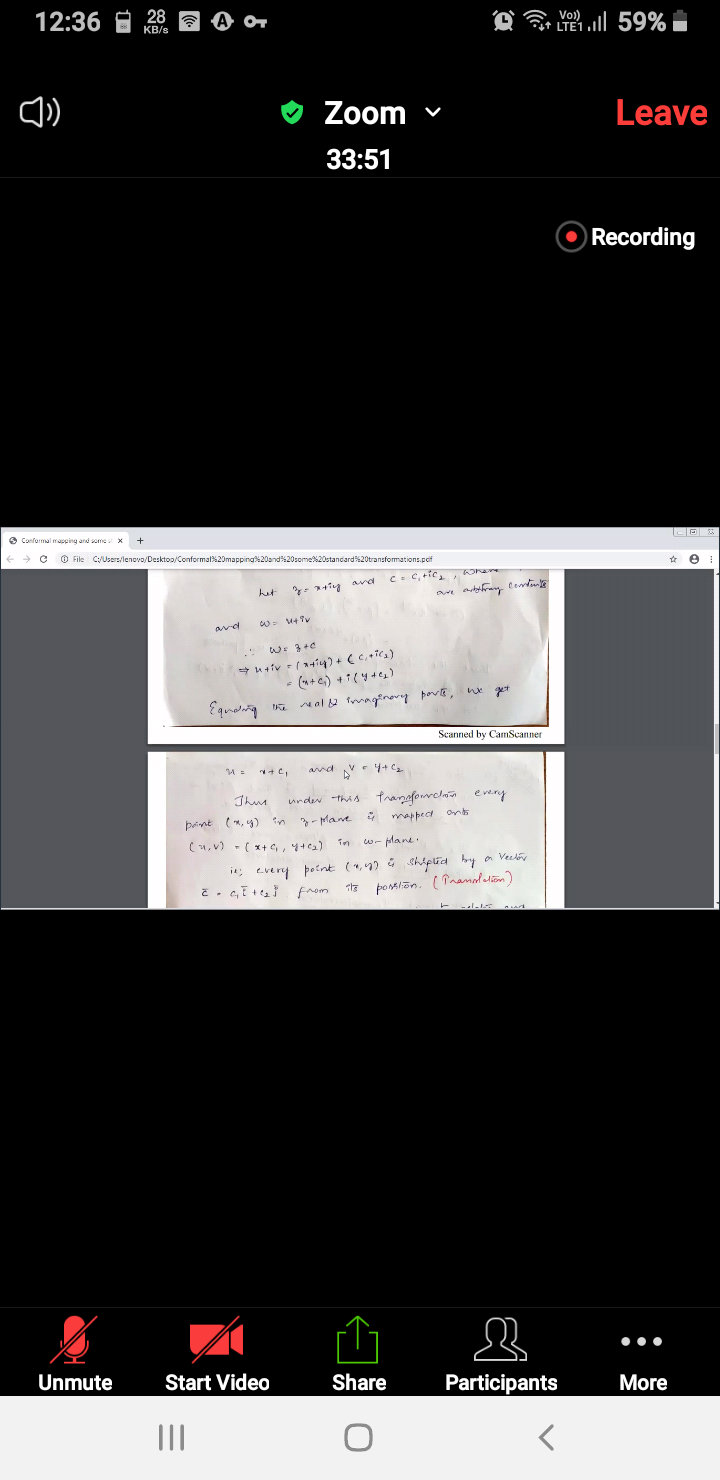 12:36 28 KB/s A Vo)) LTE1 59%
Zoom
Leave
33:51
Recording
Conformal mapping and some s x +
File C:/Users/lenovo/Desktop/Conformal%20mapping%20and%20some%20standard%20transformations.pdf
Let z = x+iy and c = c₁+ic₂, where
are arbitrary constants
and w = u+iv
∴ w = z+c
⇒ u+iv = (x+iy) + (c₁+ic₂)
= (x+c₁) + i(y+c₂)
Equating the real & imaginary parts, we get
Scanned by CamScanner
u = x+c₁ and v = y+c₂
Thus under this transformation every
point (x,y) in z-plane is mapped onto
(u,v) = (x+c₁, y+c₂) in w-plane.
ie; every point (x,y) is shifted by a vector
c̄ = c₁ī + c₂j̄ from its position. (Translation)
Unmute
Start Video
Share
Participants
More